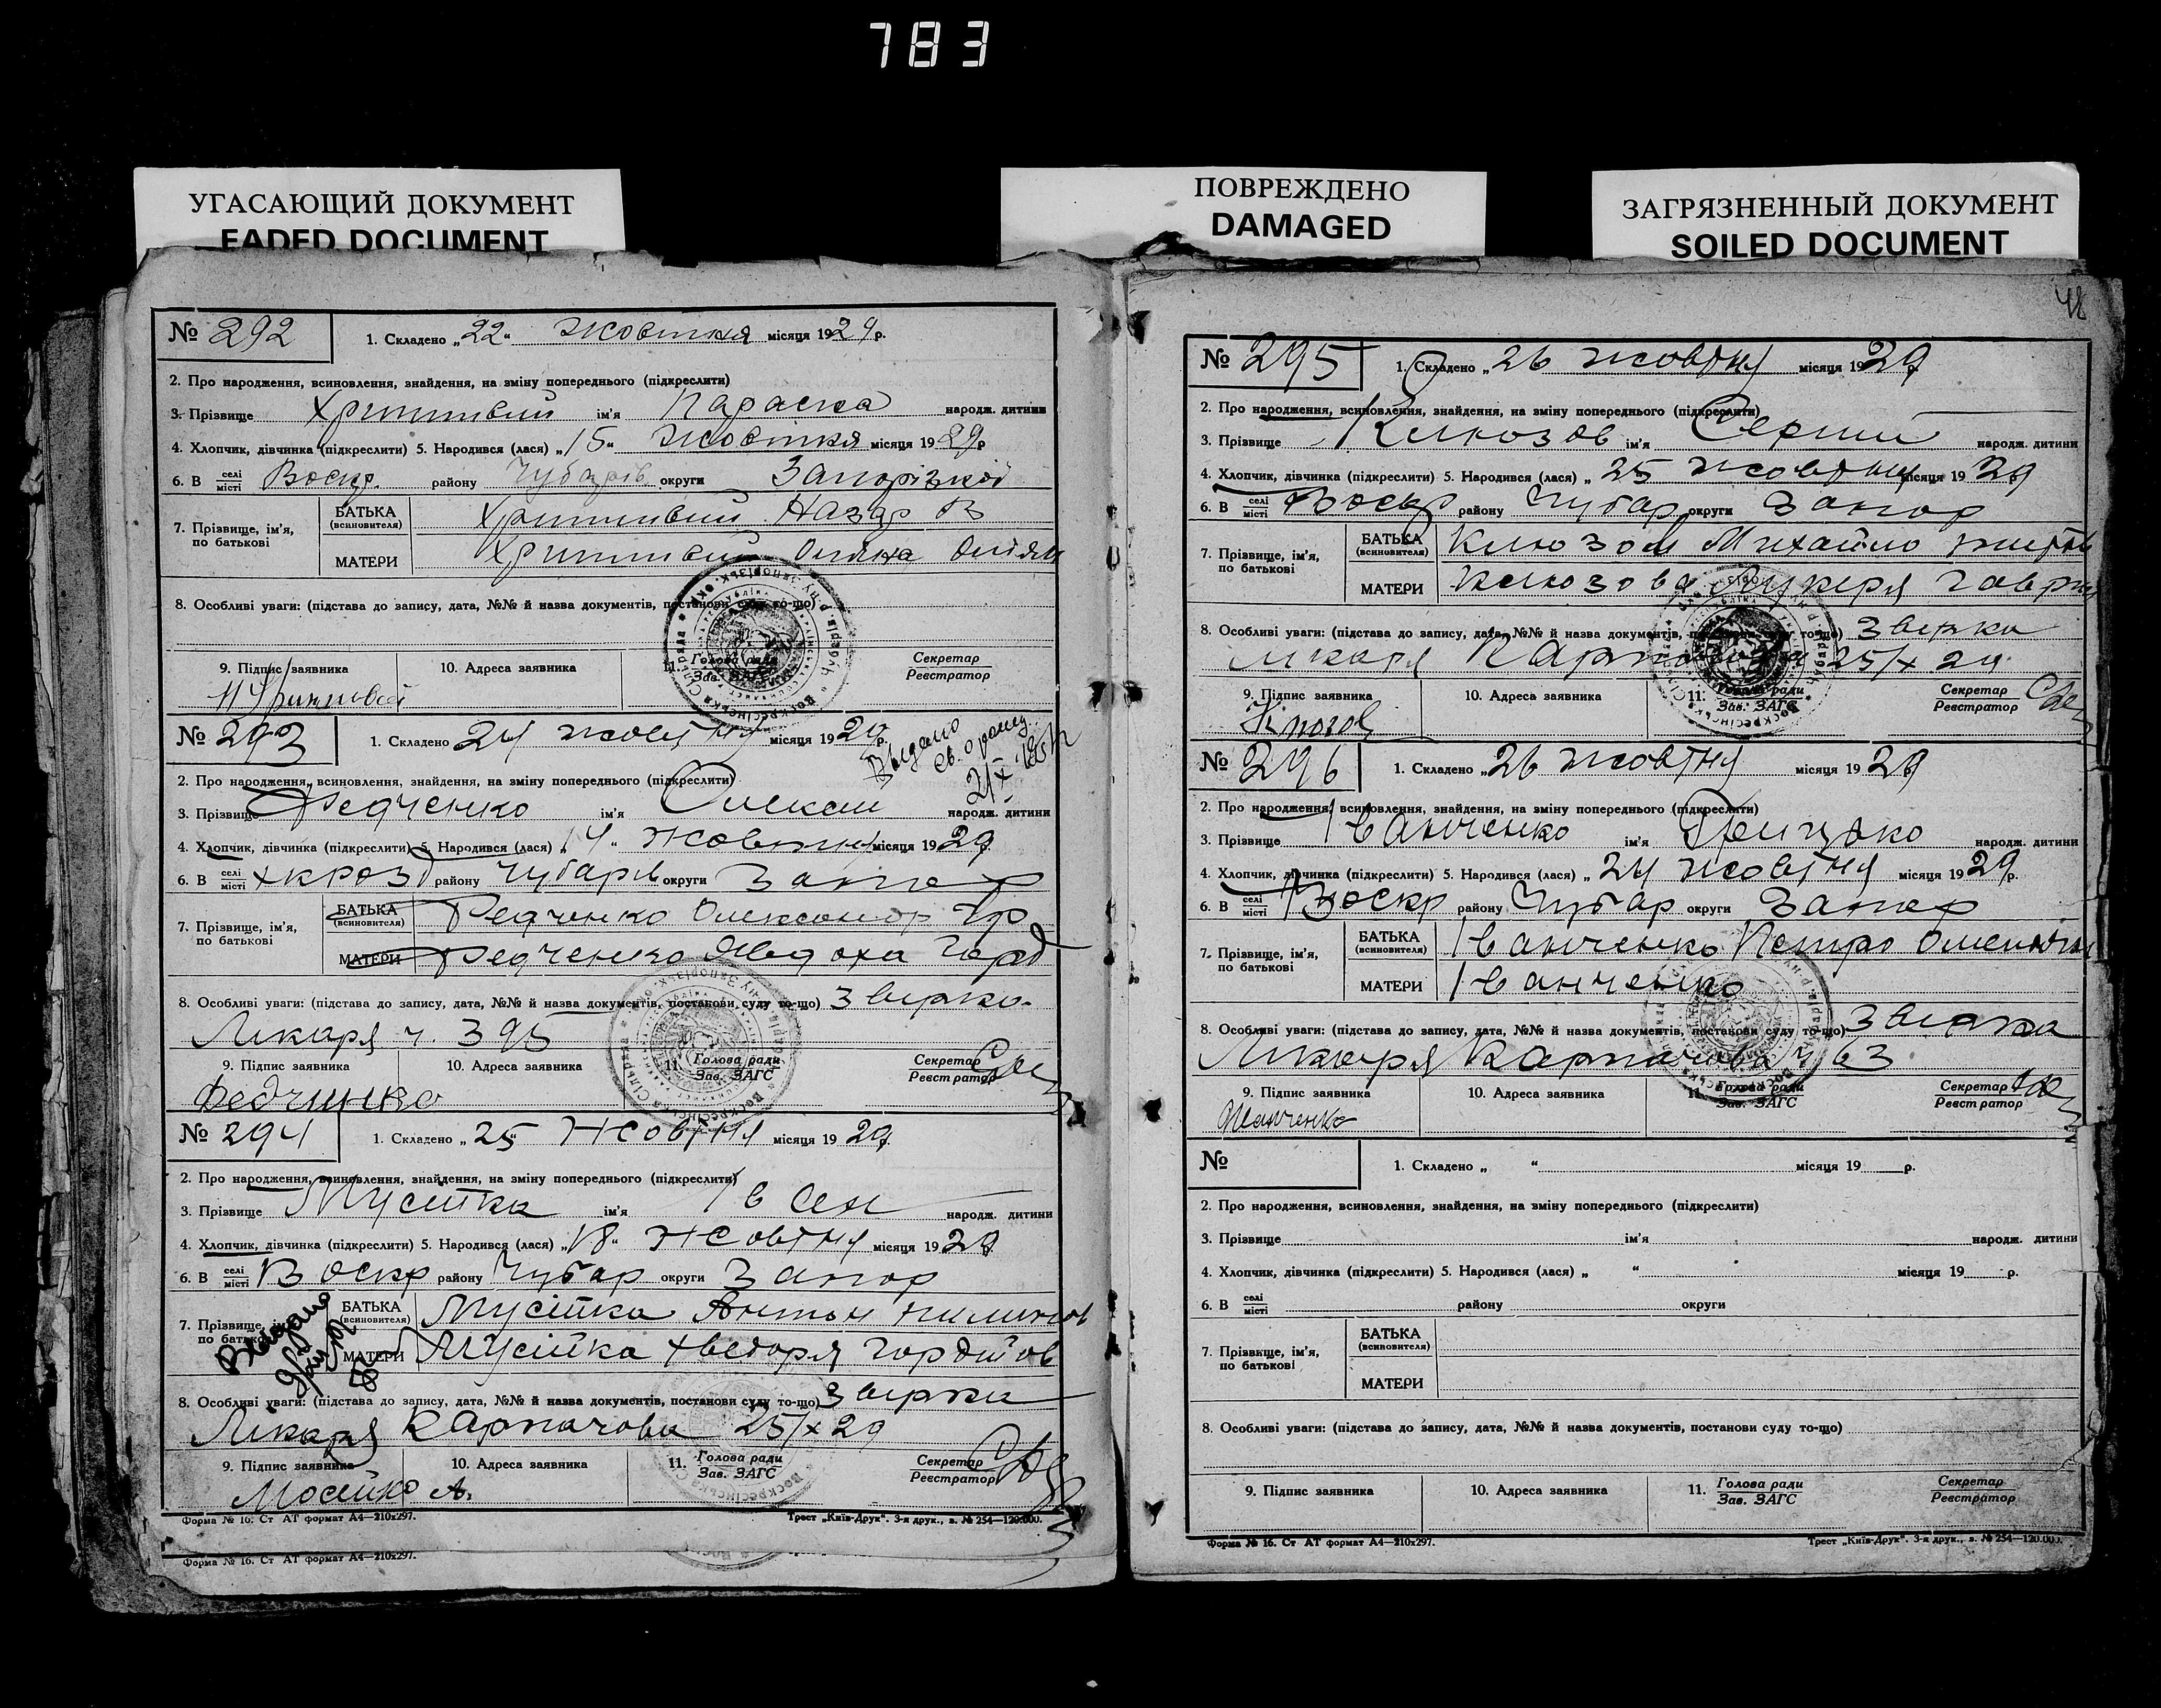 783
УГАСАЮЩИЙ ДОКУМЕНТ
FADED DOCUMENT
ПОВРЕЖДЕНО
DAMAGED
ЗАГРЯЗНЕННЫЙ ДОКУМЕНТ
SOILED DOCUMENT
№ 292 1. Складено „22“ Жовтня місяця 1929 р.
2. Про народження, всиновлення, знайдення, на зміну попереднього (підкреслити)
3. Прізвище ім'я Параска народж. дитини
4. Хлопчик, дівчинка (підкреслити) 5. Народився (лася) „15“ Жовтня місяця 1929 р
6. В селі місті Воскр. району Чубарів округи Запорізкої
7. Прізвище, ім'я, по батькові
БАТЬКА (всиновителя) Назар В
МАТЕРИ
8. Особливі уваги: (підстава до запису, дата, №№ й назва документів, постанови суду то-що)
9. Підпис заявника 10. Адреса заявника 11. Голова ради Зав. ЗАГС Секретар Реєстратор
№ 293 1. Складено 24 жовтня місяця 1929 р.
Выдано
2. Про народження, всиновлення, знайдення, на зміну попереднього (підкреслити)
3. Прізвище Федченко ім'я Олексій народж. дитини
4. Хлопчик, дівчинка (підкреслити) 5. Народився (лася) „14“ Жовтня місяця 1929 р.
6. В селі місті району Чубарів округи Запор
7. Прізвище, ім'я, по батькові
БАТЬКА (всиновителя) Федченко Олександр Гр
МАТЕРИ Федченко Явдоха Горд
8. Особливі уваги: (підстава до запису, дата, №№ й назва документів, постанови суду то-що)
Лікаря ч. 395
9. Підпис заявника 10. Адреса заявника 11. Голова ради Зав. ЗАГС Секретар Реєстратор
Федчинко
№ 294 1. Складено „25“ Жовтня місяця 1929 р.
2. Про народження, всиновлення, знайдення, на зміну попереднього (підкреслити)
3. Прізвище Мусійка ім'я Івсей народж. дитини
4. Хлопчик, дівчинка (підкреслити) 5. Народився (лася) „18“ Жовтня місяця 1929 р.
6. В селі місті Воскр району Чубар округи Запор
7. Прізвище, ім'я, по батькові
БАТЬКА (всиновителя) Мусійка Антон
МАТЕРИ Мусійка Хведоря Гордійов
8. Особливі уваги: (підстава до запису, дата, №№ й назва документів, постанови суду то-що)
Лікаря Карпачова 25/X 29
9. Підпис заявника 10. Адреса заявника 11. Голова ради Зав. ЗАГС Секретар Реєстратор
Мосейко А.
Форма № 16. Ст АТ формат А4—210х297. Трест „Київ-Друк“. 3-я друк., з. № 254—120.000.
Форма № 16. Ст АТ формат А4—210х297.
48
№ 295 1. Складено „26 жовтня місяця 1929
2. Про народження, всиновлення, знайдення, на зміну попереднього (підкреслити)
3. Прізвище Клюзов ім'я Сергій народж. дитини
4. Хлопчик, дівчинка (підкреслити) 5. Народився (лася) „25 жовтня місяця 1929
6. В селі місті Воскр району Чубар округи Запор
7. Прізвище, ім'я, по батькові
БАТЬКА (всиновителя) Клюзов Михайло
МАТЕРИ Клюзова Лукеря Гаври
8. Особливі уваги: (підстава до запису, дата, №№ й назва документів, постанови суду то-що)
Лікаря Карпачова 25/X 29
9. Підпис заявника 10. Адреса заявника 11. Голова ради Зав. ЗАГС Секретар Реєстратор
№ 296 1. Складено „26 жовтня місяця 1929
2. Про народження, всиновлення, знайдення, на зміну попереднього (підкреслити)
3. Прізвище Іванченко ім'я Грицько народж. дитини
4. Хлопчик, дівчинка (підкреслити) 5. Народився (лася) „24 жовтня місяця 1929 р.
6. В селі місті Воскр району Чубар округи Запор
7. Прізвище, ім'я, по батькові
БАТЬКА (всиновителя) Іванченко Петро
МАТЕРИ Іванченко
8. Особливі уваги: (підстава до запису, дата, №№ й назва документів, постанови суду то-що)
Лікаря Карпачова ч 63
9. Підпис заявника 10. Адреса заявника 11. Голова ради Зав. ЗАГС Секретар Реєстратор
Иванченко
№ 1. Складено „ “ місяця 19 р.
2. Про народження, всиновлення, знайдення, на зміну попереднього (підкреслити)
3. Прізвище ім'я народж. дитини
4. Хлопчик, дівчинка (підкреслити) 5. Народився (лася) „ “ місяця 19 р.
6. В селі місті району округи
7. Прізвище, ім'я, по батькові
БАТЬКА (всиновителя)
МАТЕРИ
8. Особливі уваги: (підстава до запису, дата, №№ й назва документів, постанови суду то-що)
9. Підпис заявника 10. Адреса заявника 11. Голова ради Зав. ЗАГС Секретар Реєстратор
Форма № 16. Ст АТ формат А4—210х297. Трест „Київ-Друк“. 3-я друк., з. № 254—120.000.